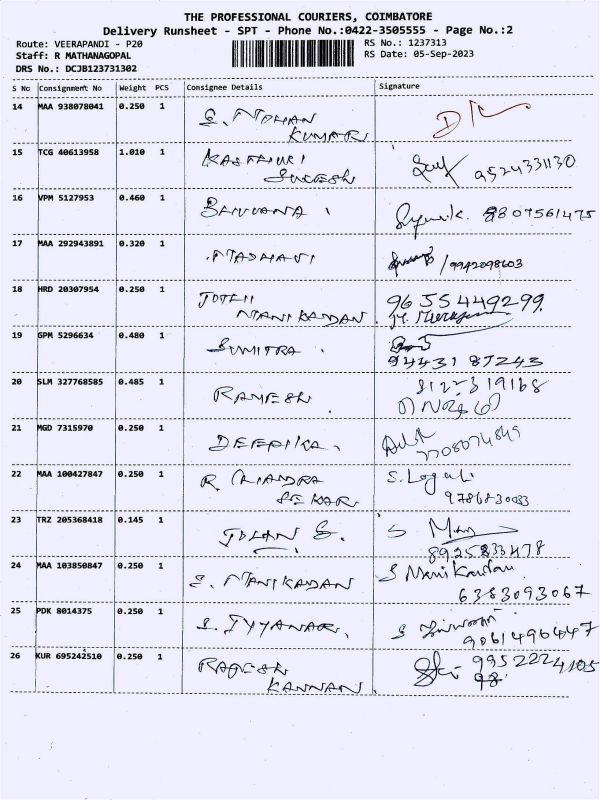 THE PROFESSIONAL COURIERS, COIMBATORE
Delivery Runsheet - SPT - Phone No.:0422-3505555 - Page No.:2
Route: VEERAPANDI - P20
RS No.: 1237313
Staff: R MATHANAGOPAL
RS Date: 05-Sep-2023
DRS No.: DCJB123731302
S No Consignment No Weight PCS Consignee Details Signature
14 MAA 938078041 0.250 1 S. MOHAN
KUMAR
15 TCG 40613958 1.010 1 KASTHURI
SURESH
9524331130
16 VPM 5127953 0.460 1 BHUVANA
9807561475
17 MAA 292943891 0.320 1 MADHAVI
9942098603
18 HRD 20307954 0.250 1 JOTHI
MANIKANDAN
9655449299
19 GPM 5296634 0.480 1 SUMITRA.
94431 87243
20 SLM 327768585 0.485 1 RAMESH
21 MGD 7315970 0.250 1 DEEPIKA.
7708074849
22 MAA 100427847 0.250 1 R. CHANDRA
SEKAR
S. Logesh
9786830083
23 TRZ 205368418 0.145 1 S
8925833478
24 MAA 103850847 0.250 1 S. MANIKANDAN
S Manikandan
6383093067
25 PDK 8014375 0.250 1 S. IYYANAR.
9061496447
26 KUR 695242510 0.250 1 RAJESH
KANNAN.
9952224105
98